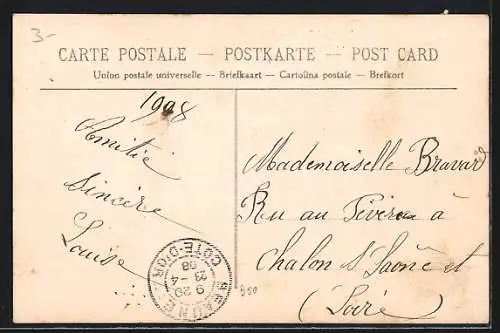 3-
CARTE POSTALE — POSTKARTE — POST CARD
Union postale universelle — Briefkaart — Cartolina postale — Brefkort
1908
Amitié
Sincère
Louise
Mademoiselle Bravard
Ru au à
Chalon S Saône et
(Loire)
CÔTE-D'OR
9 20
23 - 4
08